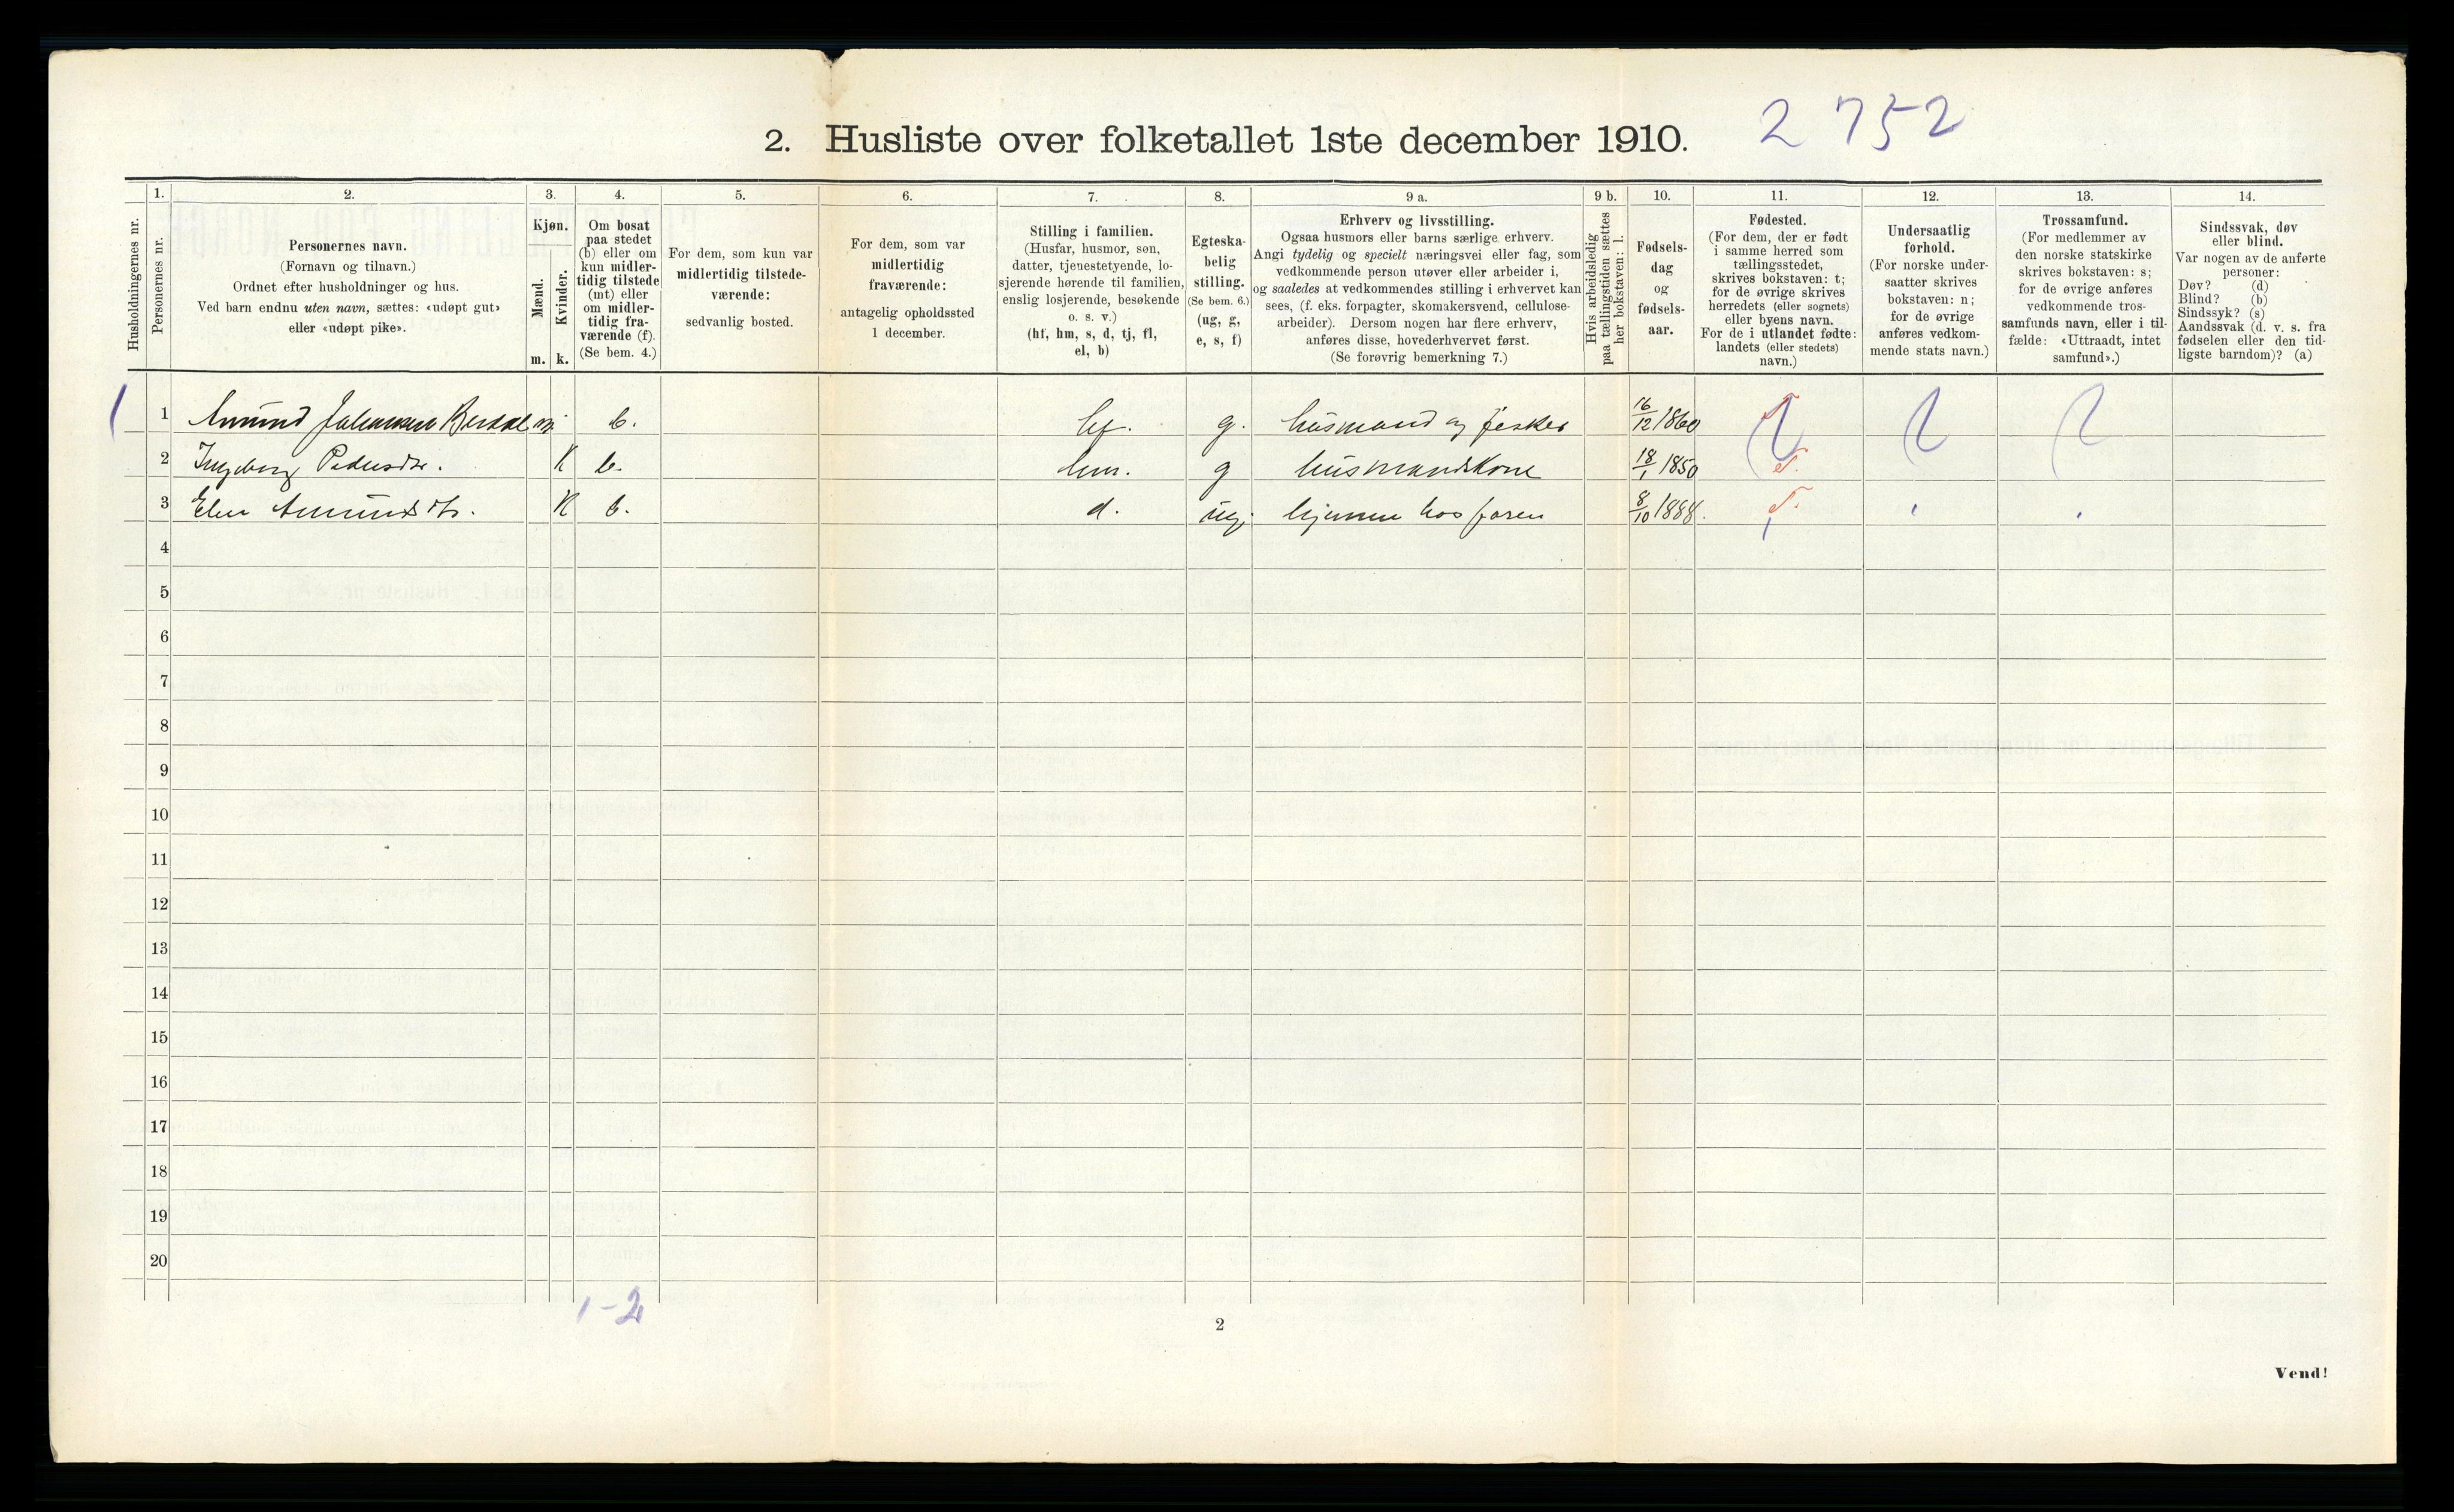 2. Husliste over folketallet 1ste december 1910. 2 752
1. 2. 3. 4. 5. 6. 7. 8. 9 a. 9 b. 10. 11. 12. 13. 14.
Husholdningernes nr.
Personernes nr.
Personernes navn.
(Fornavn og tilnavn.)
Ordnet efter husholdninger og hus.
Ved barn endnu uten navn, sættes: «udøpt gut»
eller «udøpt pike».
Kjøn.
Mænd.
Kvinder.
m. k.
Om bosat
paa stedet
(b) eller om
kun midler-
tidig tilstede
(mt) eller
om midler-
tidig fra-
værende (f).
(Se bem. 4.)
For dem, som kun var
midlertidig tilstede-
værende:
sedvanlig bosted.
For dem, som var
midlertidig
fraværende:
antagelig opholdssted
1 december.
Stilling i familien.
(Husfar, husmor, søn,
datter, tjenestetyende, lo-
sjerende hørende til familien,
enslig losjerende, besøkende
o. s. v.)
(hf, hm, s, d, tj, fl,
el, b)
Egteska-
belig
stilling.
(Se bem. 6.)
(ug, g,
e, s, f)
Erhverv og livsstilling.
Ogsaa husmors eller barns særlige erhverv.
Angi tydelig og specielt næringsvei eller fag, som
vedkommende person utøver eller arbeider i,
og saaledes at vedkommendes stilling i erhvervet kan
sees, (f. eks. forpagter, skomakersvend, cellulose-
arbeider). Dersom nogen har flere erhverv,
anføres disse, hovederhvervet først.
(Se forøvrig bemerkning 7.)
Hvis arbeidsledig
paa tællingstiden sættes
her bokstaven: l.
Fødsels-
dag
og
fødsels-
aar.
Fødested.
(For dem, der er født
i samme herred som
tællingsstedet,
skrives bokstaven: t;
for de øvrige skrives
herredets (eller sognets)
eller byens navn.
For de i utlandet fødte:
landets (eller stedets)
navn.)
Undersaatlig
forhold.
(For norske under-
saatter skrives
bokstaven: n;
for de øvrige
anføres vedkom-
mende stats navn.)
Trossamfund.
(For medlemmer av
den norske statskirke
skrives bokstaven: s;
for de øvrige anføres
vedkommende tros-
samfunds navn, eller i til-
fælde: «Uttraadt, intet
samfund».)
Sindssvak, døv
eller blind.
Var nogen av de anførte
personer:
Døv? (d)
Blind? (b)
Sindssyk? (s)
Aandssvak (d. v. s. fra
fødselen eller den tid-
ligste barndom)? (a)
1 1 Amund Johannesen m. b. hf. g. husmand og fisker 16/12 1860 T
2 Ingeborg Pedersdtr. K b. hm. g husmandskone 18/1 1850 T.
3 Elen Amundsdtr. K b. d. ug. hjemme hos faren 8/10 1888. T.
4
5
6
7
8
9
10
11
12
13
14
15
16
17
18
19
20
1-2
2
Vend!